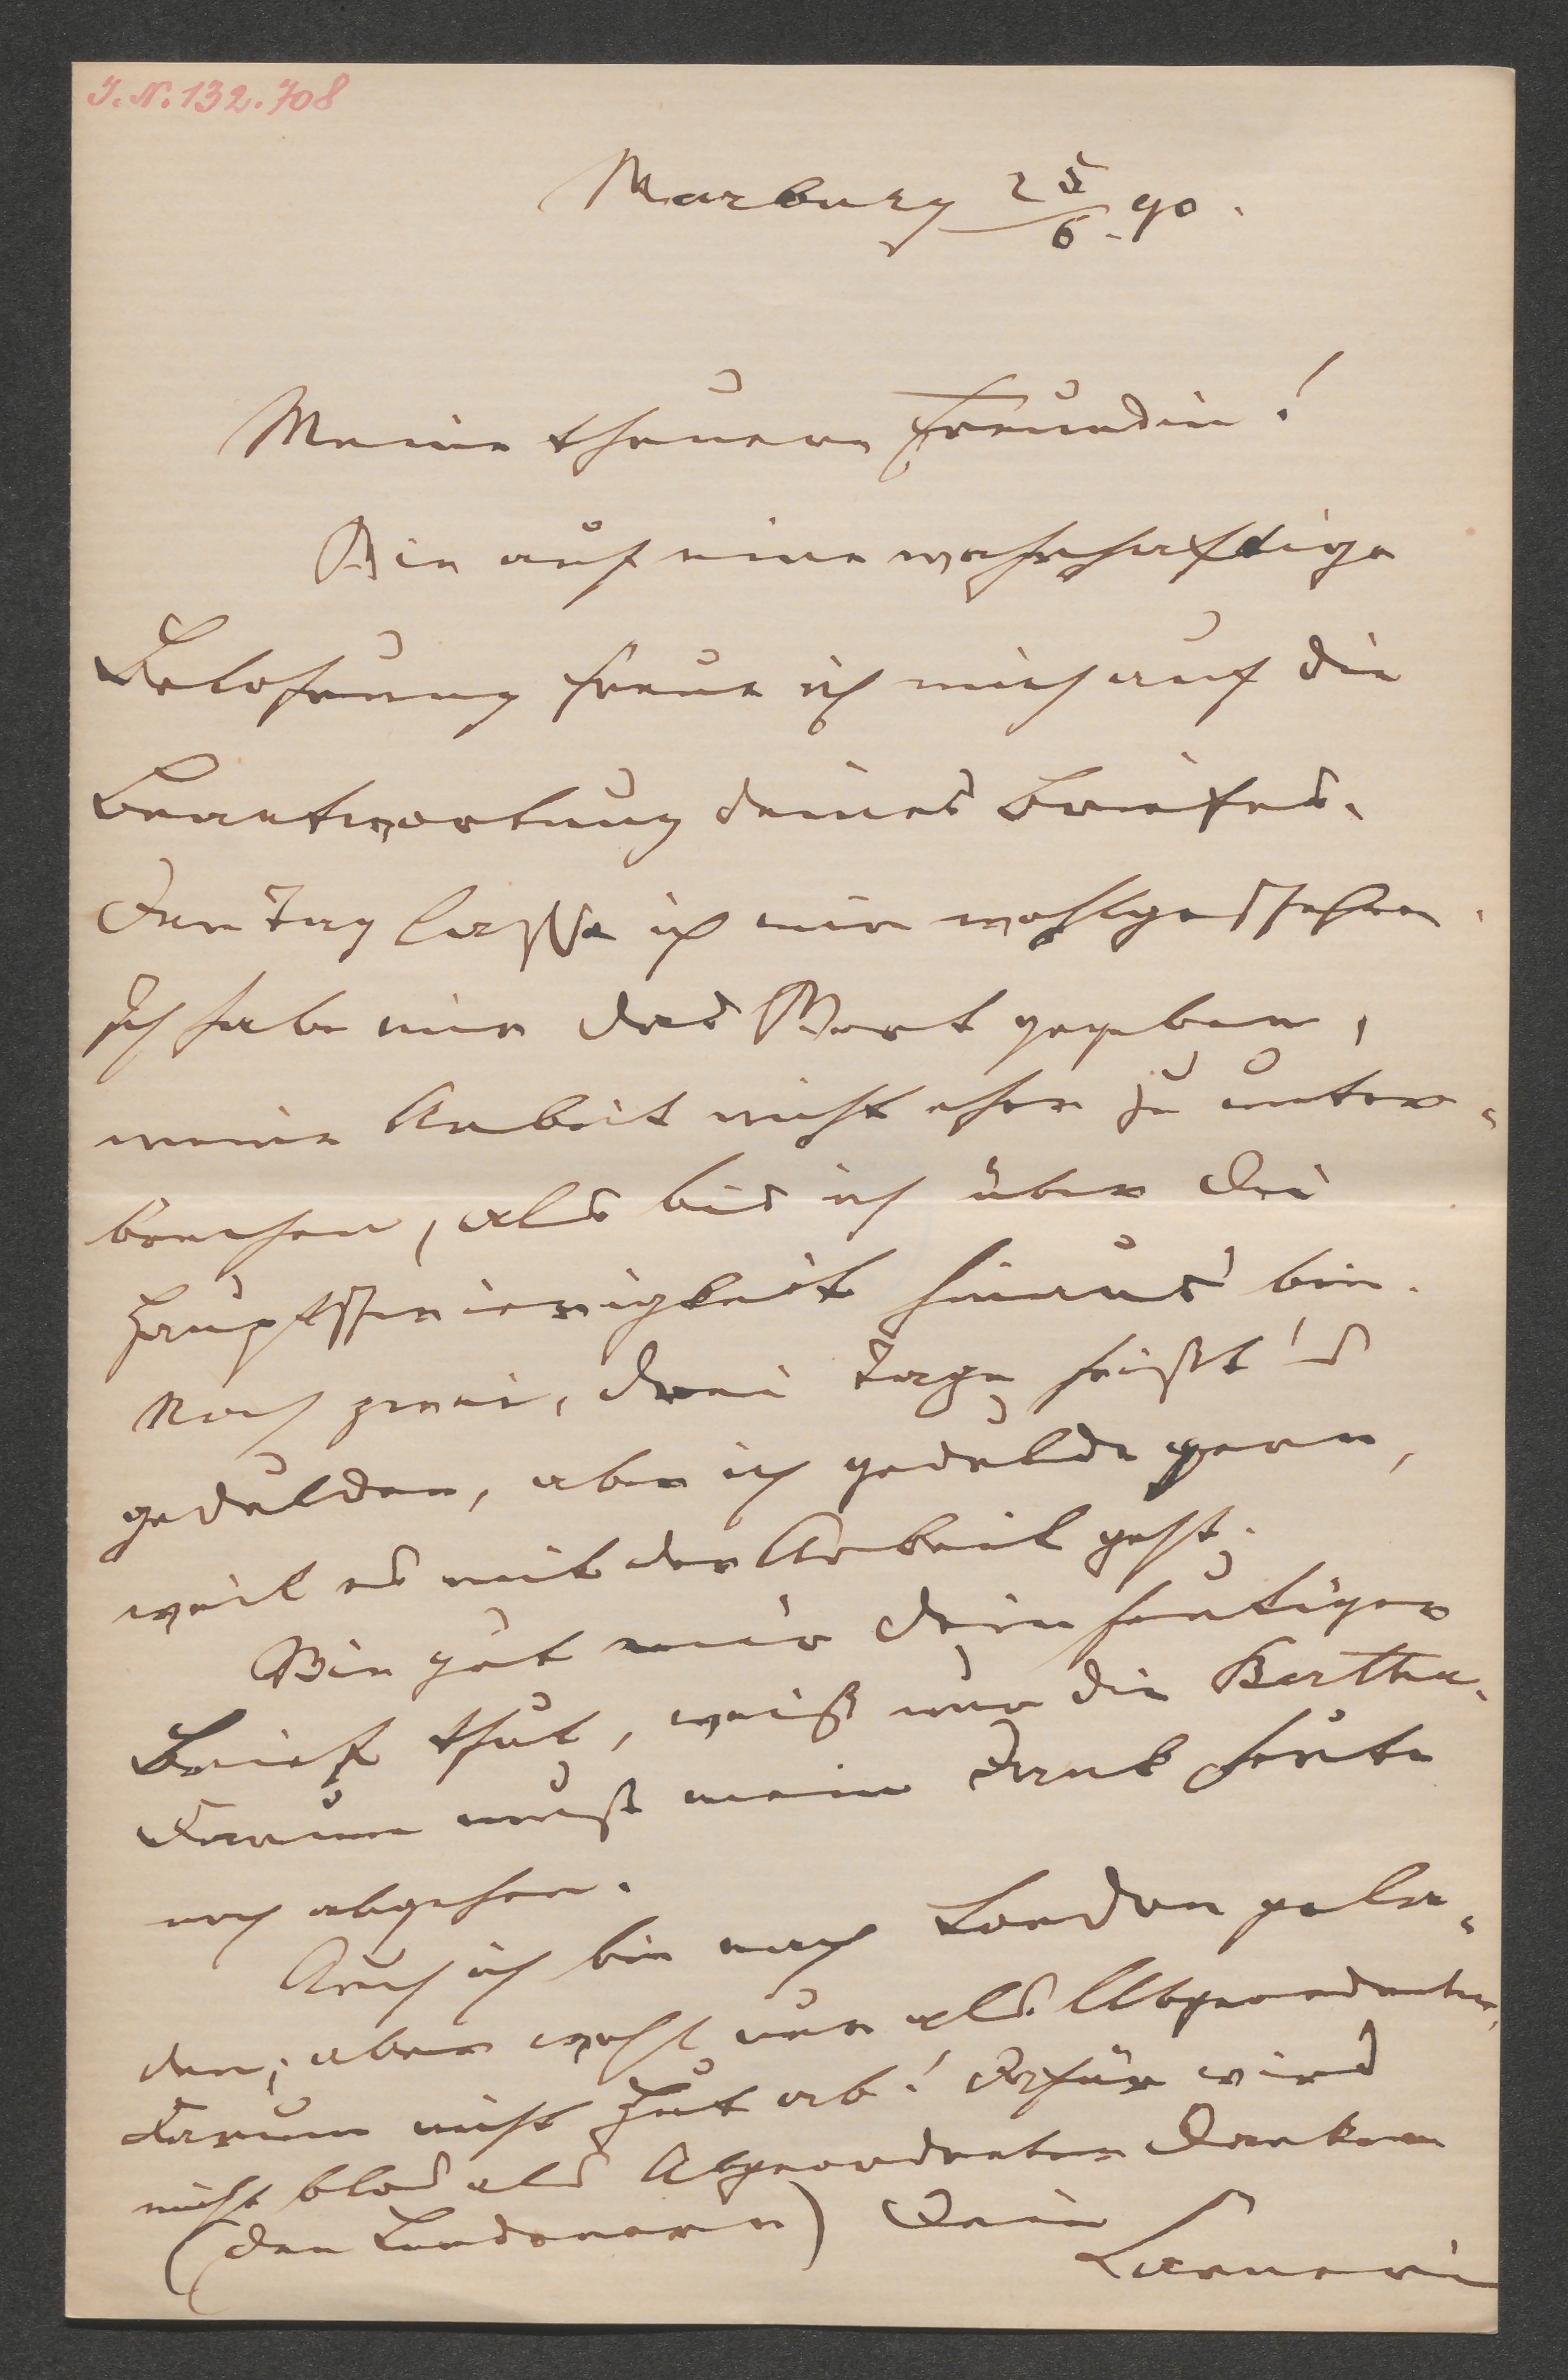 I. N. 132.708
Marburg 25/6. 90.
Meine theuere Freundin!
Wie auf eine wahrhaftige
Belohnung freue ich mich auf die
Beantwortung deines Briefes.
Den Tag lasse ich mir wohlgeschehen.
Ich habe mir das Wort gegeben,
meine Arbeit nicht eher zu unter-
brechen, als bis ich über die
Hauptschwierigkeit hinaus bin.
Noch zwei, drei Tage heißt's
gedulden, aber ich gedulde gern,
weil es mit der Arbeit geht.
Wie gut mir dein heutiger
Brief thut, weiß nur die Bertha.
Darum muß mein Dank heute
noch abgehen.
Auch ich bin nach London gela-
den; aber wohl nur als Abgeordneter,
darum nicht Hut ab! Dafür wird
nicht blos als Abgeordneter danken
(den Londonern) Dein
Carneri